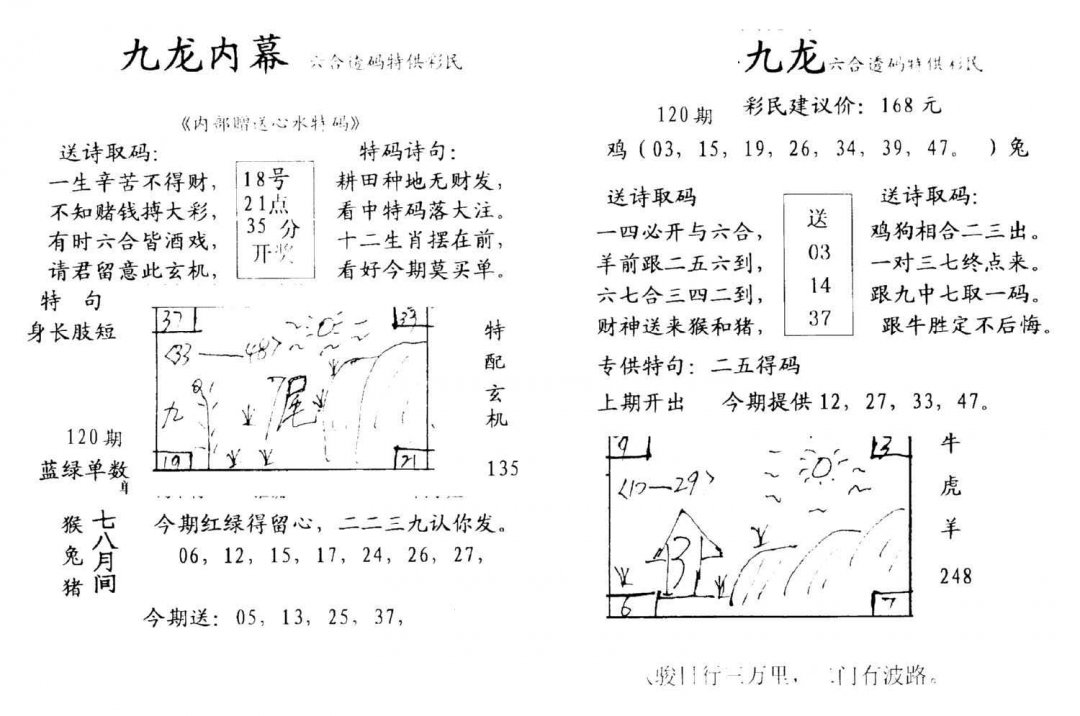 九龙内幕 六合透码特供彩民
《内部赠送心水特码》
送诗取码:
一生辛苦不得财,
不知赌钱搏大彩,
有时六合皆酒戏,
请君留意此玄机,
18号
21点
35 分
开奖
特码诗句:
耕田种地无财发,
看中特码落大注。
十二生肖摆在前,
看好今期莫买单。
特 句
身长肢短
37
33
<33—48>
九
尾
19
21
特配玄机
135
120期
蓝绿单数
猴兔猪
七八月间
今期红绿得留心, 二二三九认你发。
06, 12, 15, 17, 24, 26, 27,
今期送: 05, 13, 25, 37,
九龙 六合透码特供彩民
120期 彩民建议价: 168 元
鸡 ( 03, 15, 19, 26, 34, 39, 47。 ) 兔
送诗取码
一四必开与六合,
羊前跟二五六到,
六七合三四二到,
财神送来猴和猪,
送
03
14
37
送诗取码:
鸡狗相合二三出。
一对三七终点来。
跟九中七取一码。
跟牛胜定不后悔。
专供特句: 二五得码
上期开出 今期提供 12, 27, 33, 47。
9
13
3
6
7
牛
虎
羊
248
骏日行三万里, 门有波路。